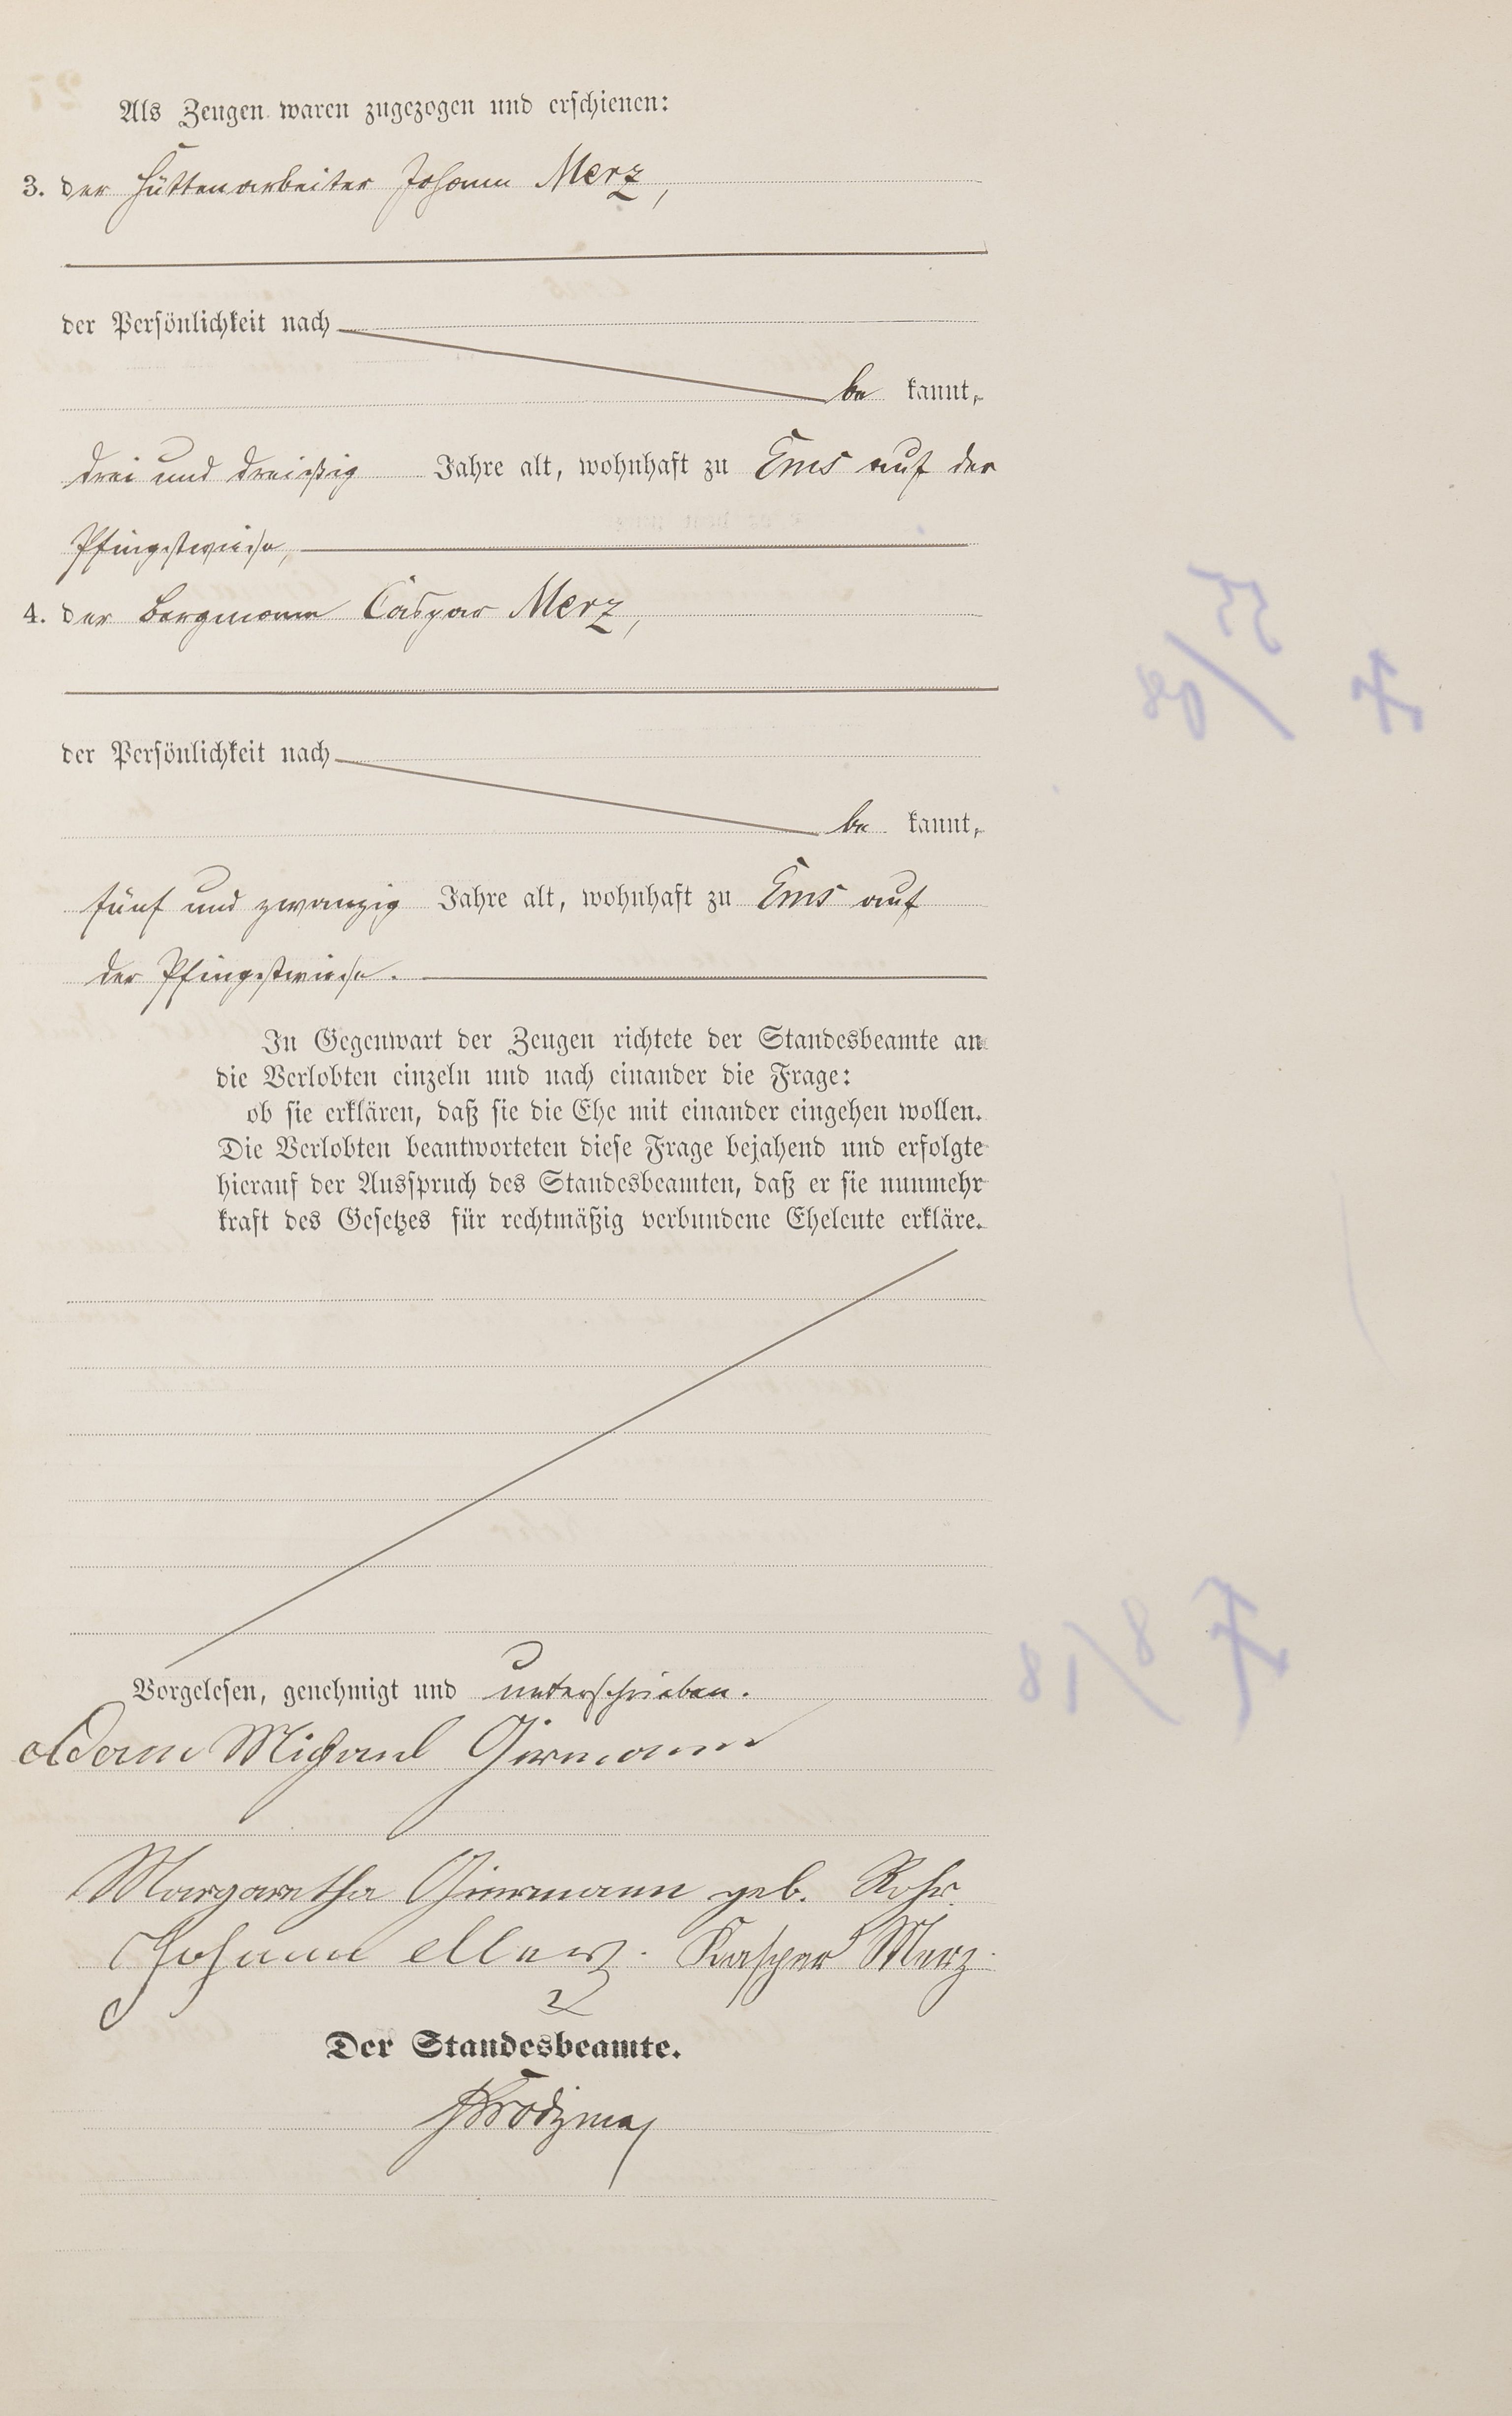 Als Zeugen waren zugezogen und erschienen:
3. der Hüttenarbeiter Johann Merz,
der Persönlichkeit nach
be kannt,
drei und dreißig Jahre alt, wohnhaft zu Ems auf der
Pfingstwiese,
4. der Bergmann Caspar Merz,
der Persönlichkeit nach
be kannt,
fünf und zwanzig Jahre alt, wohnhaft zu Ems auf
der Pfingstwiese.
In Gegenwart der Zeugen richtete der Standesbeamte an
die Verlobten einzeln und nach einander die Frage:
ob sie erklären, daß sie die Ehe mit einander eingehen wollen.
Die Verlobten beantworteten diese Frage bejahend und erfolgte
hierauf der Ausspruch des Standesbeamten, daß er sie nunmehr
kraft des Gesetzes für rechtmäßig verbundene Eheleute erkläre.
Vorgelesen, genehmigt und unterschrieben.
Adam Michael Girmann
Margaretha Girmann geb. Rohr.
Johann Merz. Kasper Merz.
Der Standesbeamte.